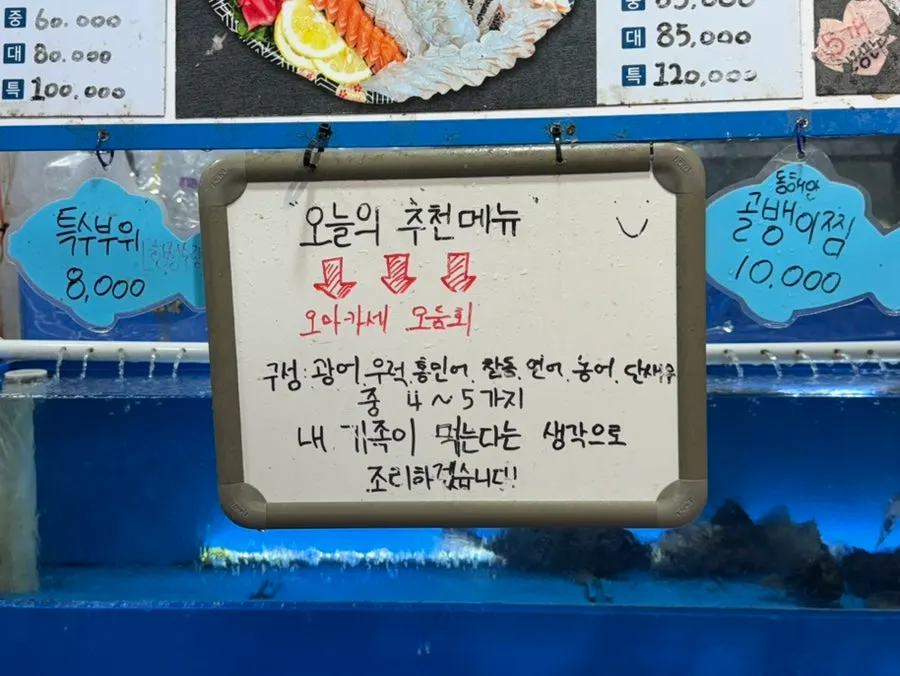 중 60.000
대 80.000
특 100.000
대 85,000
특 120,000
특수부위
8,000
"오늘의 추천메뉴"
오마카세 모듬회
구성: 광어, 우럭, 홍민어, 참돔, 연어, 농어, 단새우
중 4~5가지
내 가족이 먹는다는 생각으로
조리하겠습니다!
동해안
골뱅이찜
10,000